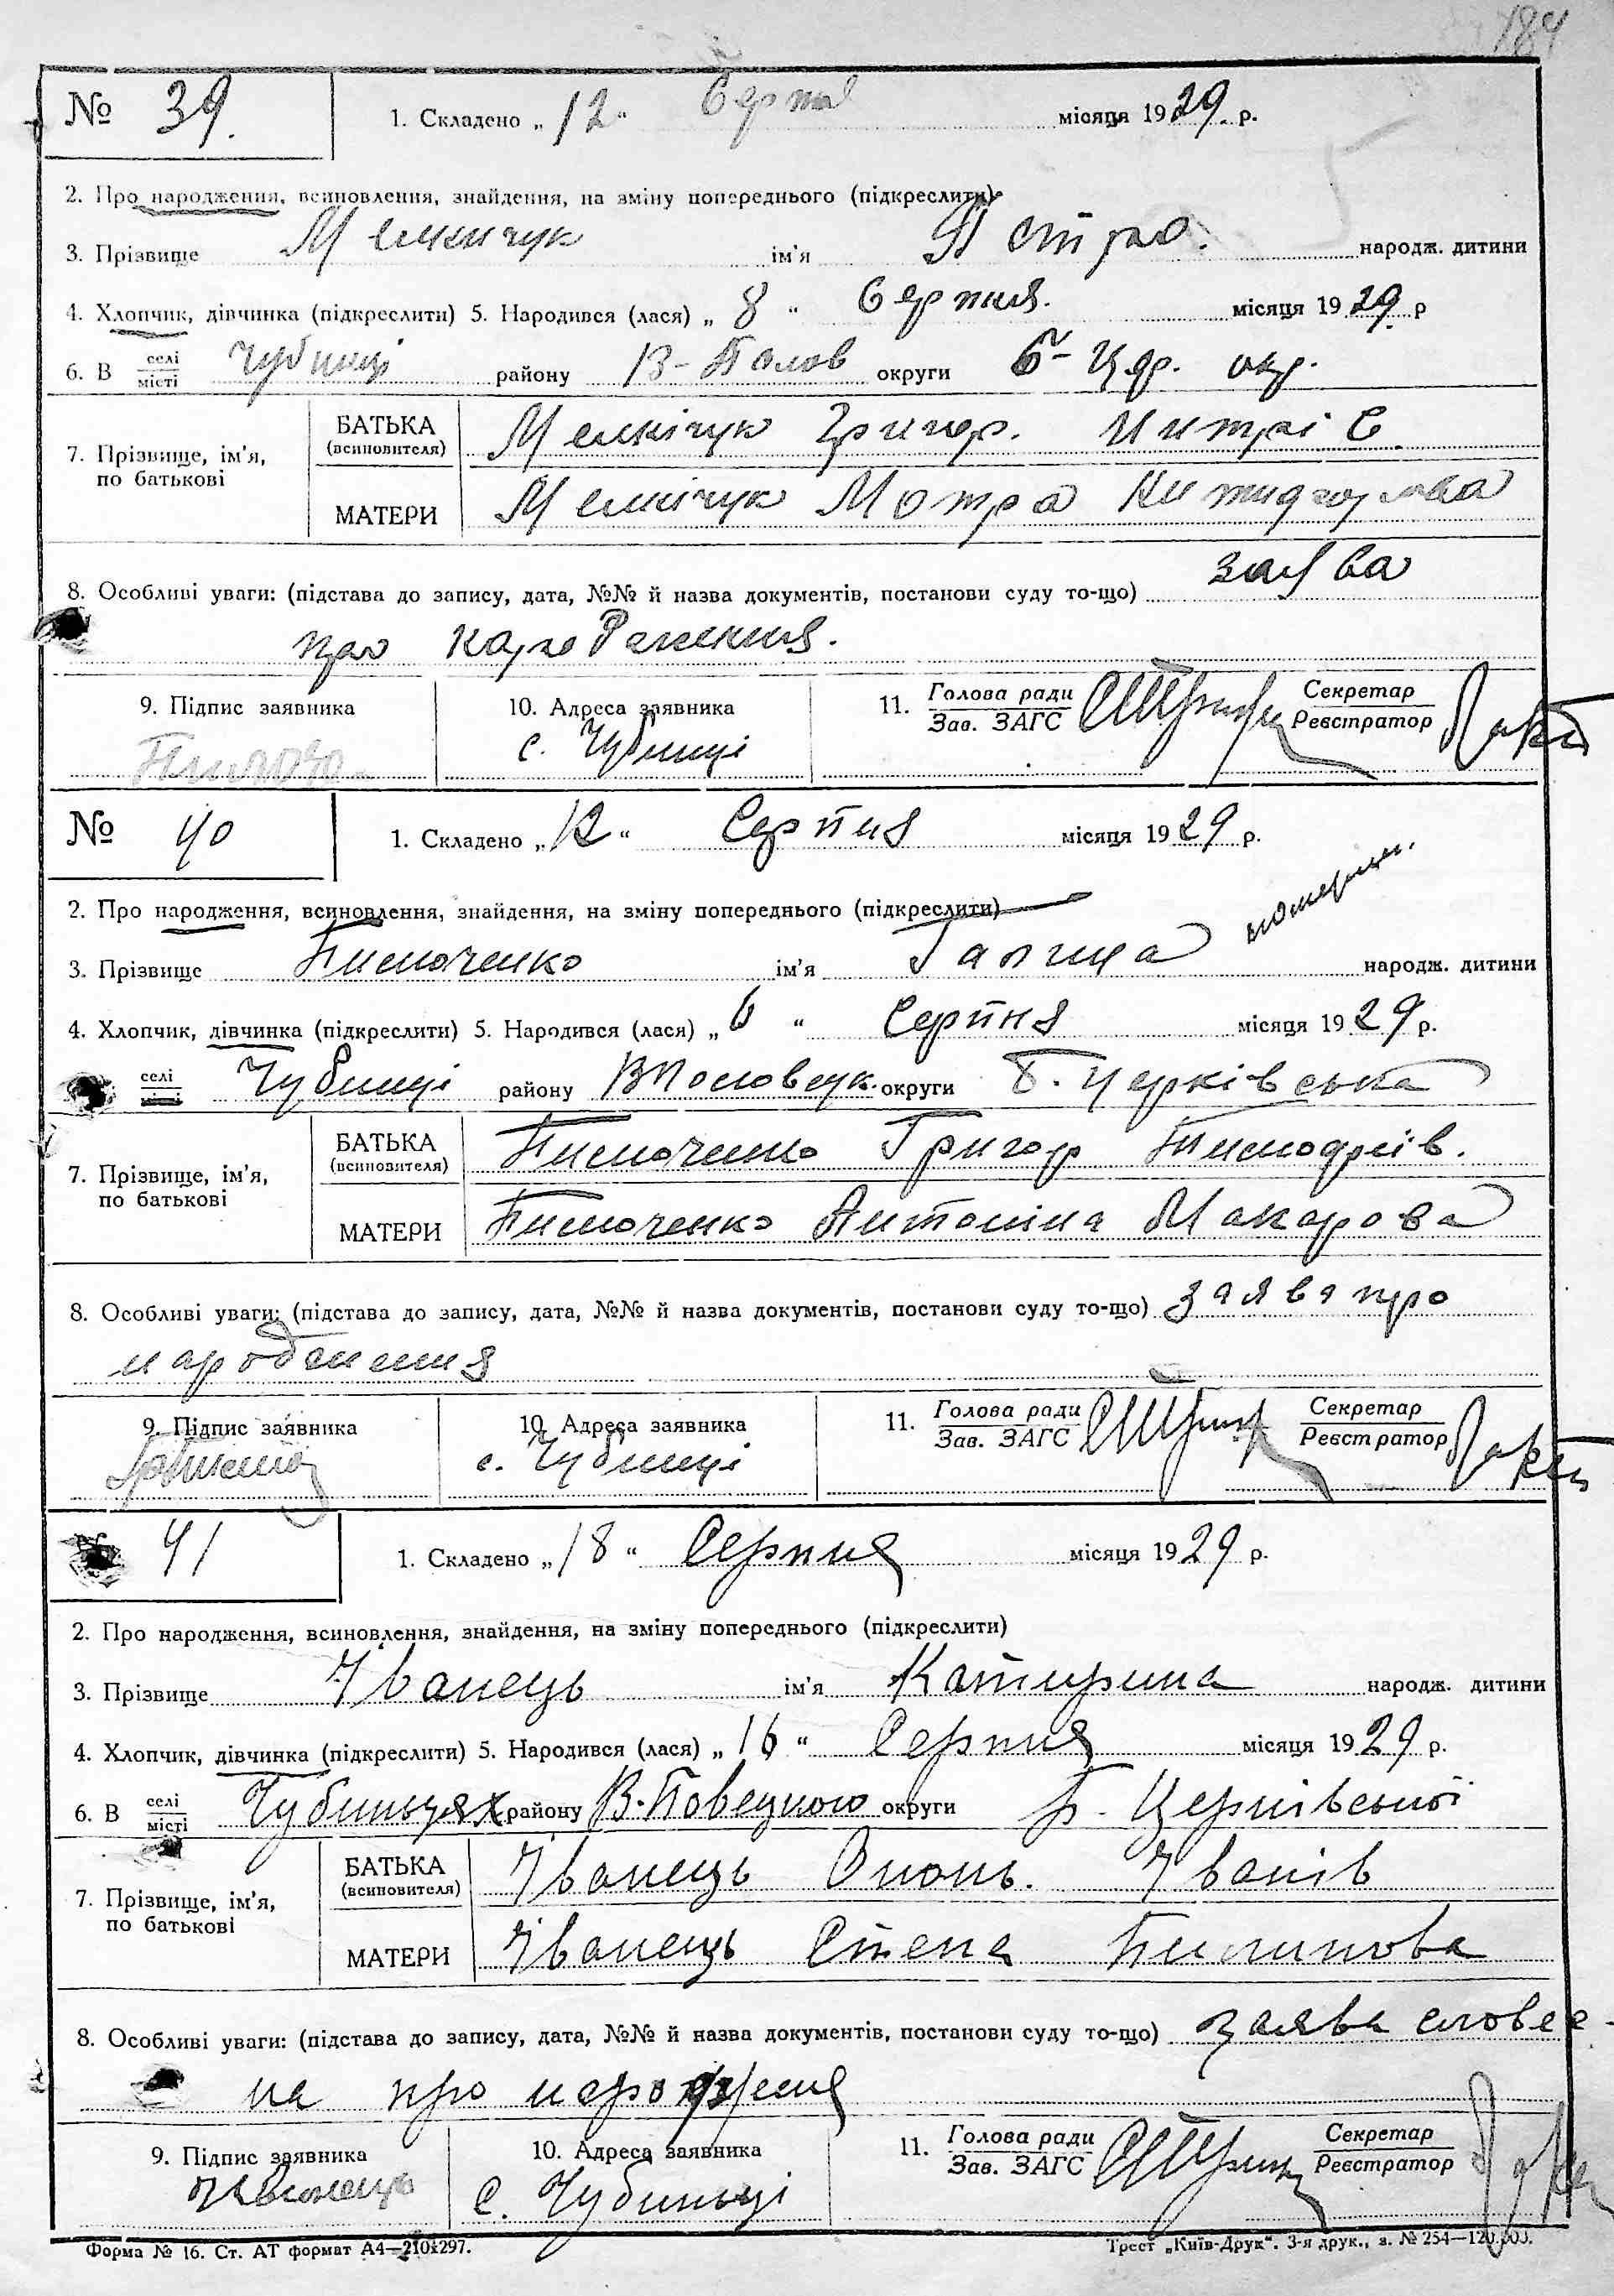 184
№ 39. 1. Складено „12“ Серпня місяця 1929. р.
2. Про народження, всиновлення, знайдення, на зміну попереднього (підкреслити)
3. Прізвище ім'я Петро. народж. дитини
4. Хлопчик, дівчинка (підкреслити) 5. Народився (лася) „8“ Серпня. місяця 1929 р
6. В селі місті Чубинці району В-Полов округи Б-Цер. окр.
7. Прізвище, ім'я, по батькові
БАТЬКА (всиновителя) Мельнічук Григор.
МАТЕРИ Мельнічук Мотра
8. Особливі уваги: (підстава до запису, дата, №№ й назва документів, постанови суду то-що) заява
про народження.
9. Підпис заявника 10. Адреса заявника 11. Голова ради Зав. ЗАГС Секретар Реєстратор
с. Чубинці
№ 40 1. Складено „12“ Серпня місяця 1929 р.
померла.
2. Про народження, всиновлення, знайдення, на зміну попереднього (підкреслити)
3. Прізвище Тимоченко ім'я Галина народж. дитини
4. Хлопчик, дівчинка (підкреслити) 5. Народився (лася) „6“ Серпня місяця 1929 р.
селі Чубинці району округи Б. Церківська
7. Прізвище, ім'я, по батькові
БАТЬКА (всиновителя) Тимоченко Григор
МАТЕРИ Тимоченко Антоніна Макарова
8. Особливі уваги: (підстава до запису, дата, №№ й назва документів, постанови суду то-що) заява про
народження
9. Підпис заявника 10. Адреса заявника 11. Голова ради Зав. ЗАГС Секретар Реєстратор
с. Чубинці
41 1. Складено „18“ Серпня місяця 1929 р.
2. Про народження, всиновлення, знайдення, на зміну попереднього (підкреслити)
3. Прізвище Іванець ім'я Катирина народж. дитини
4. Хлопчик, дівчинка (підкреслити) 5. Народився (лася) „16“ Серпня місяця 1929 р.
6. В селі місті Чубиньцях району округи Б. Церківської
7. Прізвище, ім'я, по батькові
БАТЬКА (всиновителя) Іванець Іванів
МАТЕРИ Іванець Степа Пилипова
8. Особливі уваги: (підстава до запису, дата, №№ й назва документів, постанови суду то-що) заява словес-
на про народженя
9. Підпис заявника 10. Адреса заявника 11. Голова ради Зав. ЗАГС Секретар Реєстратор
Іванець с. Чубиньці
Форма № 16. Ст. АТ формат А4—210×297. Трест „Київ-Друк“. 3-я друк., з. № 254—120.000.